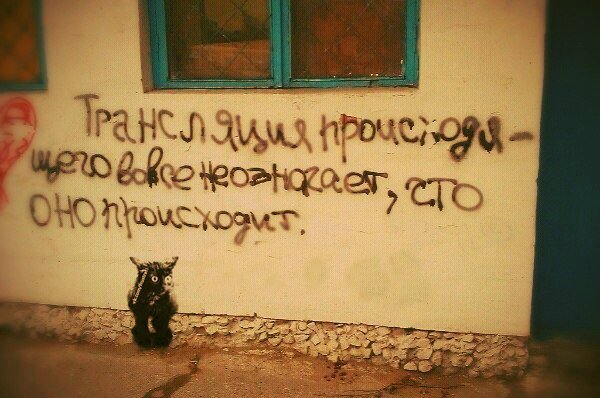 Трансляция происходя-
щего вовсе не означает, что
оно происходит.